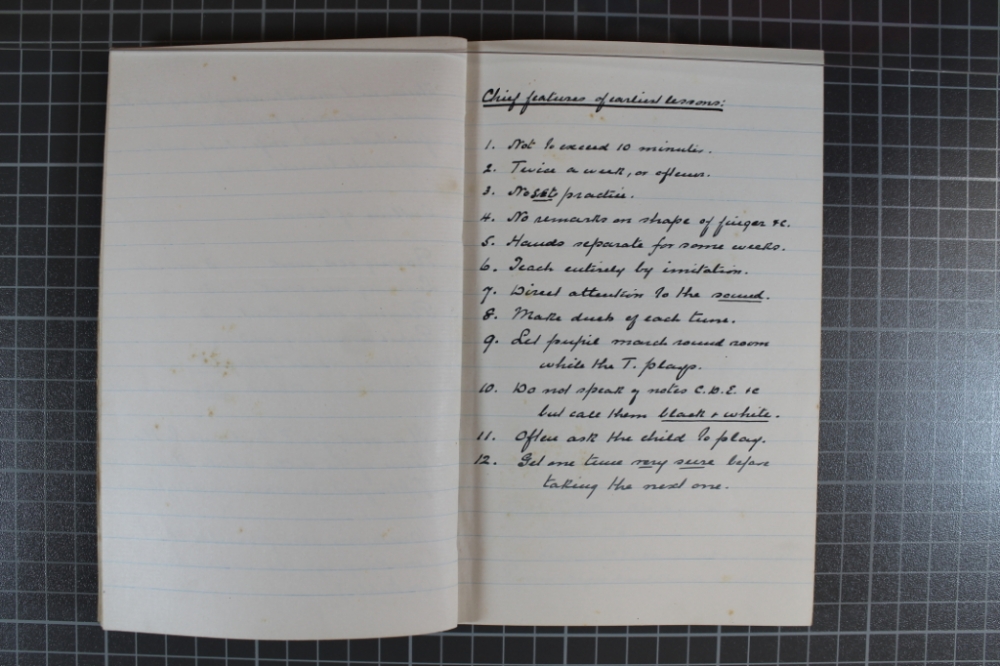 Chief features of earliest lessons:
1. Not to exceed 10 minutes.
2. Twice a week, or oftener.
3. No set practice.
4. No remarks on shape of finger &c.
5. Hands separate for some weeks.
6. Teach entirely by imitation.
7. Direct attention to the sound.
8. Make duets of each tune.
9. Let pupil march round room
while the T. plays.
10. Do not speak of notes C.D.E. &c
but call them black & white.
11. Often ask the child to play.
12. Get one tune very sure before
taking the next one.